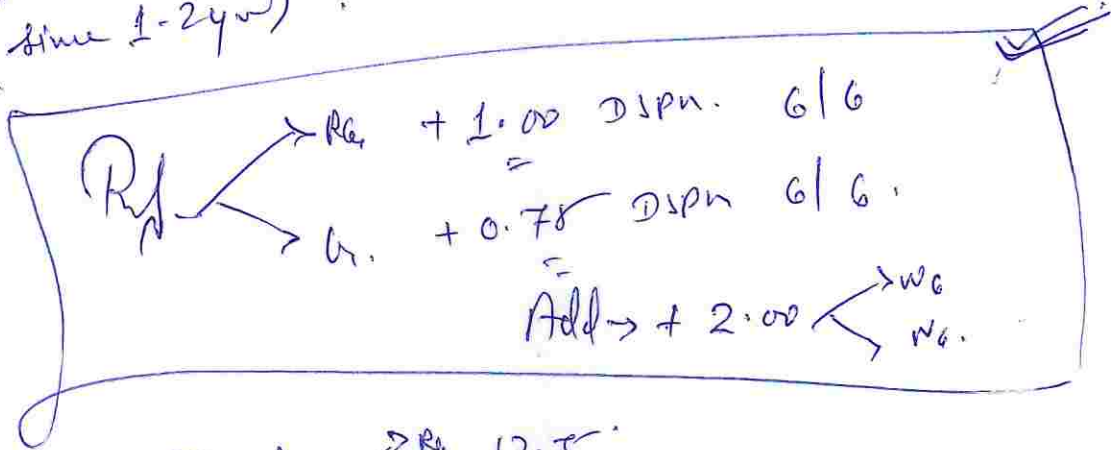 Since 1-2 yrs)
RE + 1.00 DSPH. 6/6
LE. + 0.75 DSPH 6/6.
Add → + 2.00 N6
N6.
RE 12.5